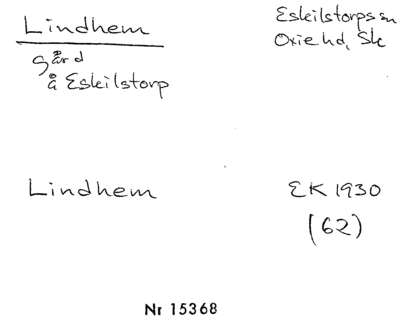 Lindhem
Eskilstorps sn
Oxie hd, Sk
gård
å Eskilstorp
Lindhem
EK 1930
(62)
Nr 15368